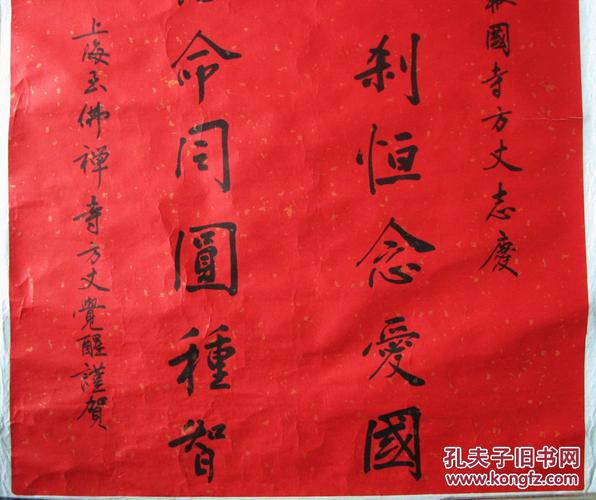 國寺方丈志慶
刹恒念愛國
命同圓種智
上海玉佛禪寺方丈覺醒謹賀
孔夫子旧书网
www.kongfz.com